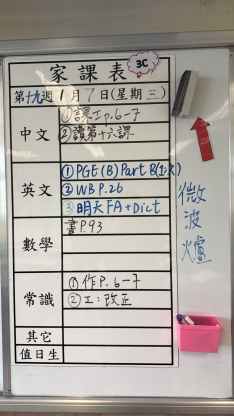 家課表 3C
第十九週 1月7日(星期三)
中文
①課工p.6-7
②讀第十六課
英文
①PGE(B) Part B(1-X)
②WB P.26
③明天FA+Dict
數學
書P.93
常識
①作P.6-7
②工:改正
其它
值日生
微波爐